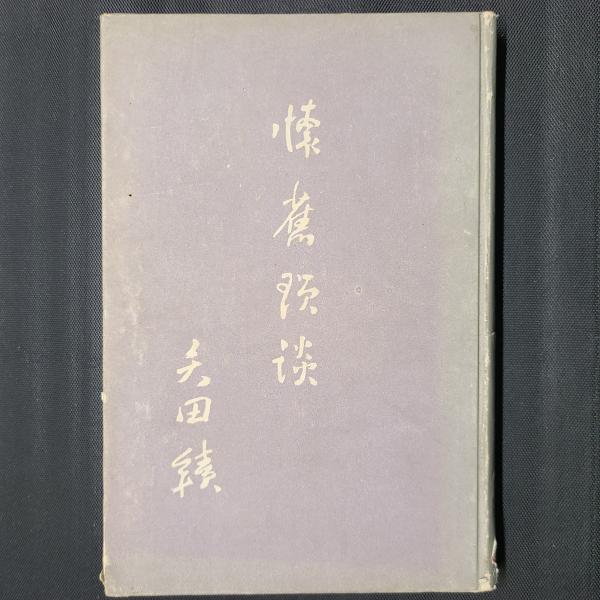 懐舊瑣談
矢田績